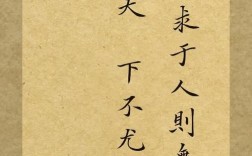 求于人則無
天 下不尤